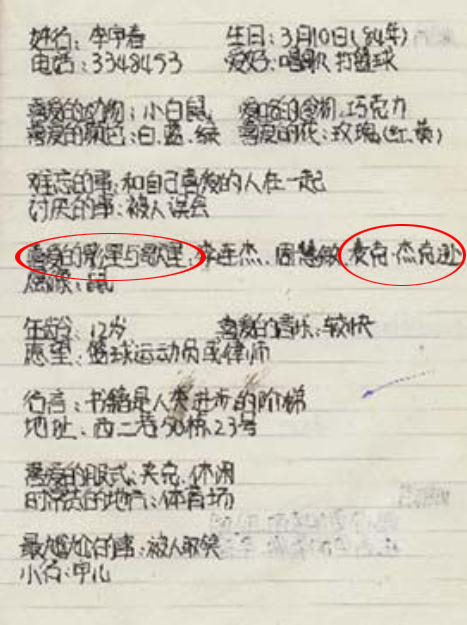 姓名：李宇春 生日：3月10日（84年）
电话：3348453 爱好：唱歌 打篮球
喜爱的动物：小白鼠 爱吃的食物：巧克力
喜爱的颜色：白、蓝、绿 喜爱的花：玫瑰（红、黄）
难忘的事：和自己喜爱的人在一起
讨厌的事：被人误会
喜爱的影星与歌星：李连杰、周慧敏、麦克·杰克逊
属像：鼠
年龄：12岁 喜爱的音乐：较快
愿望：篮球运动员或律师
名言：书籍是人类进步的阶梯
地址：西二巷 栋23号
喜爱的服式：夹克、休闲
时常去的地方：体育场
最尴尬的事：被人取笑
小名：甲儿